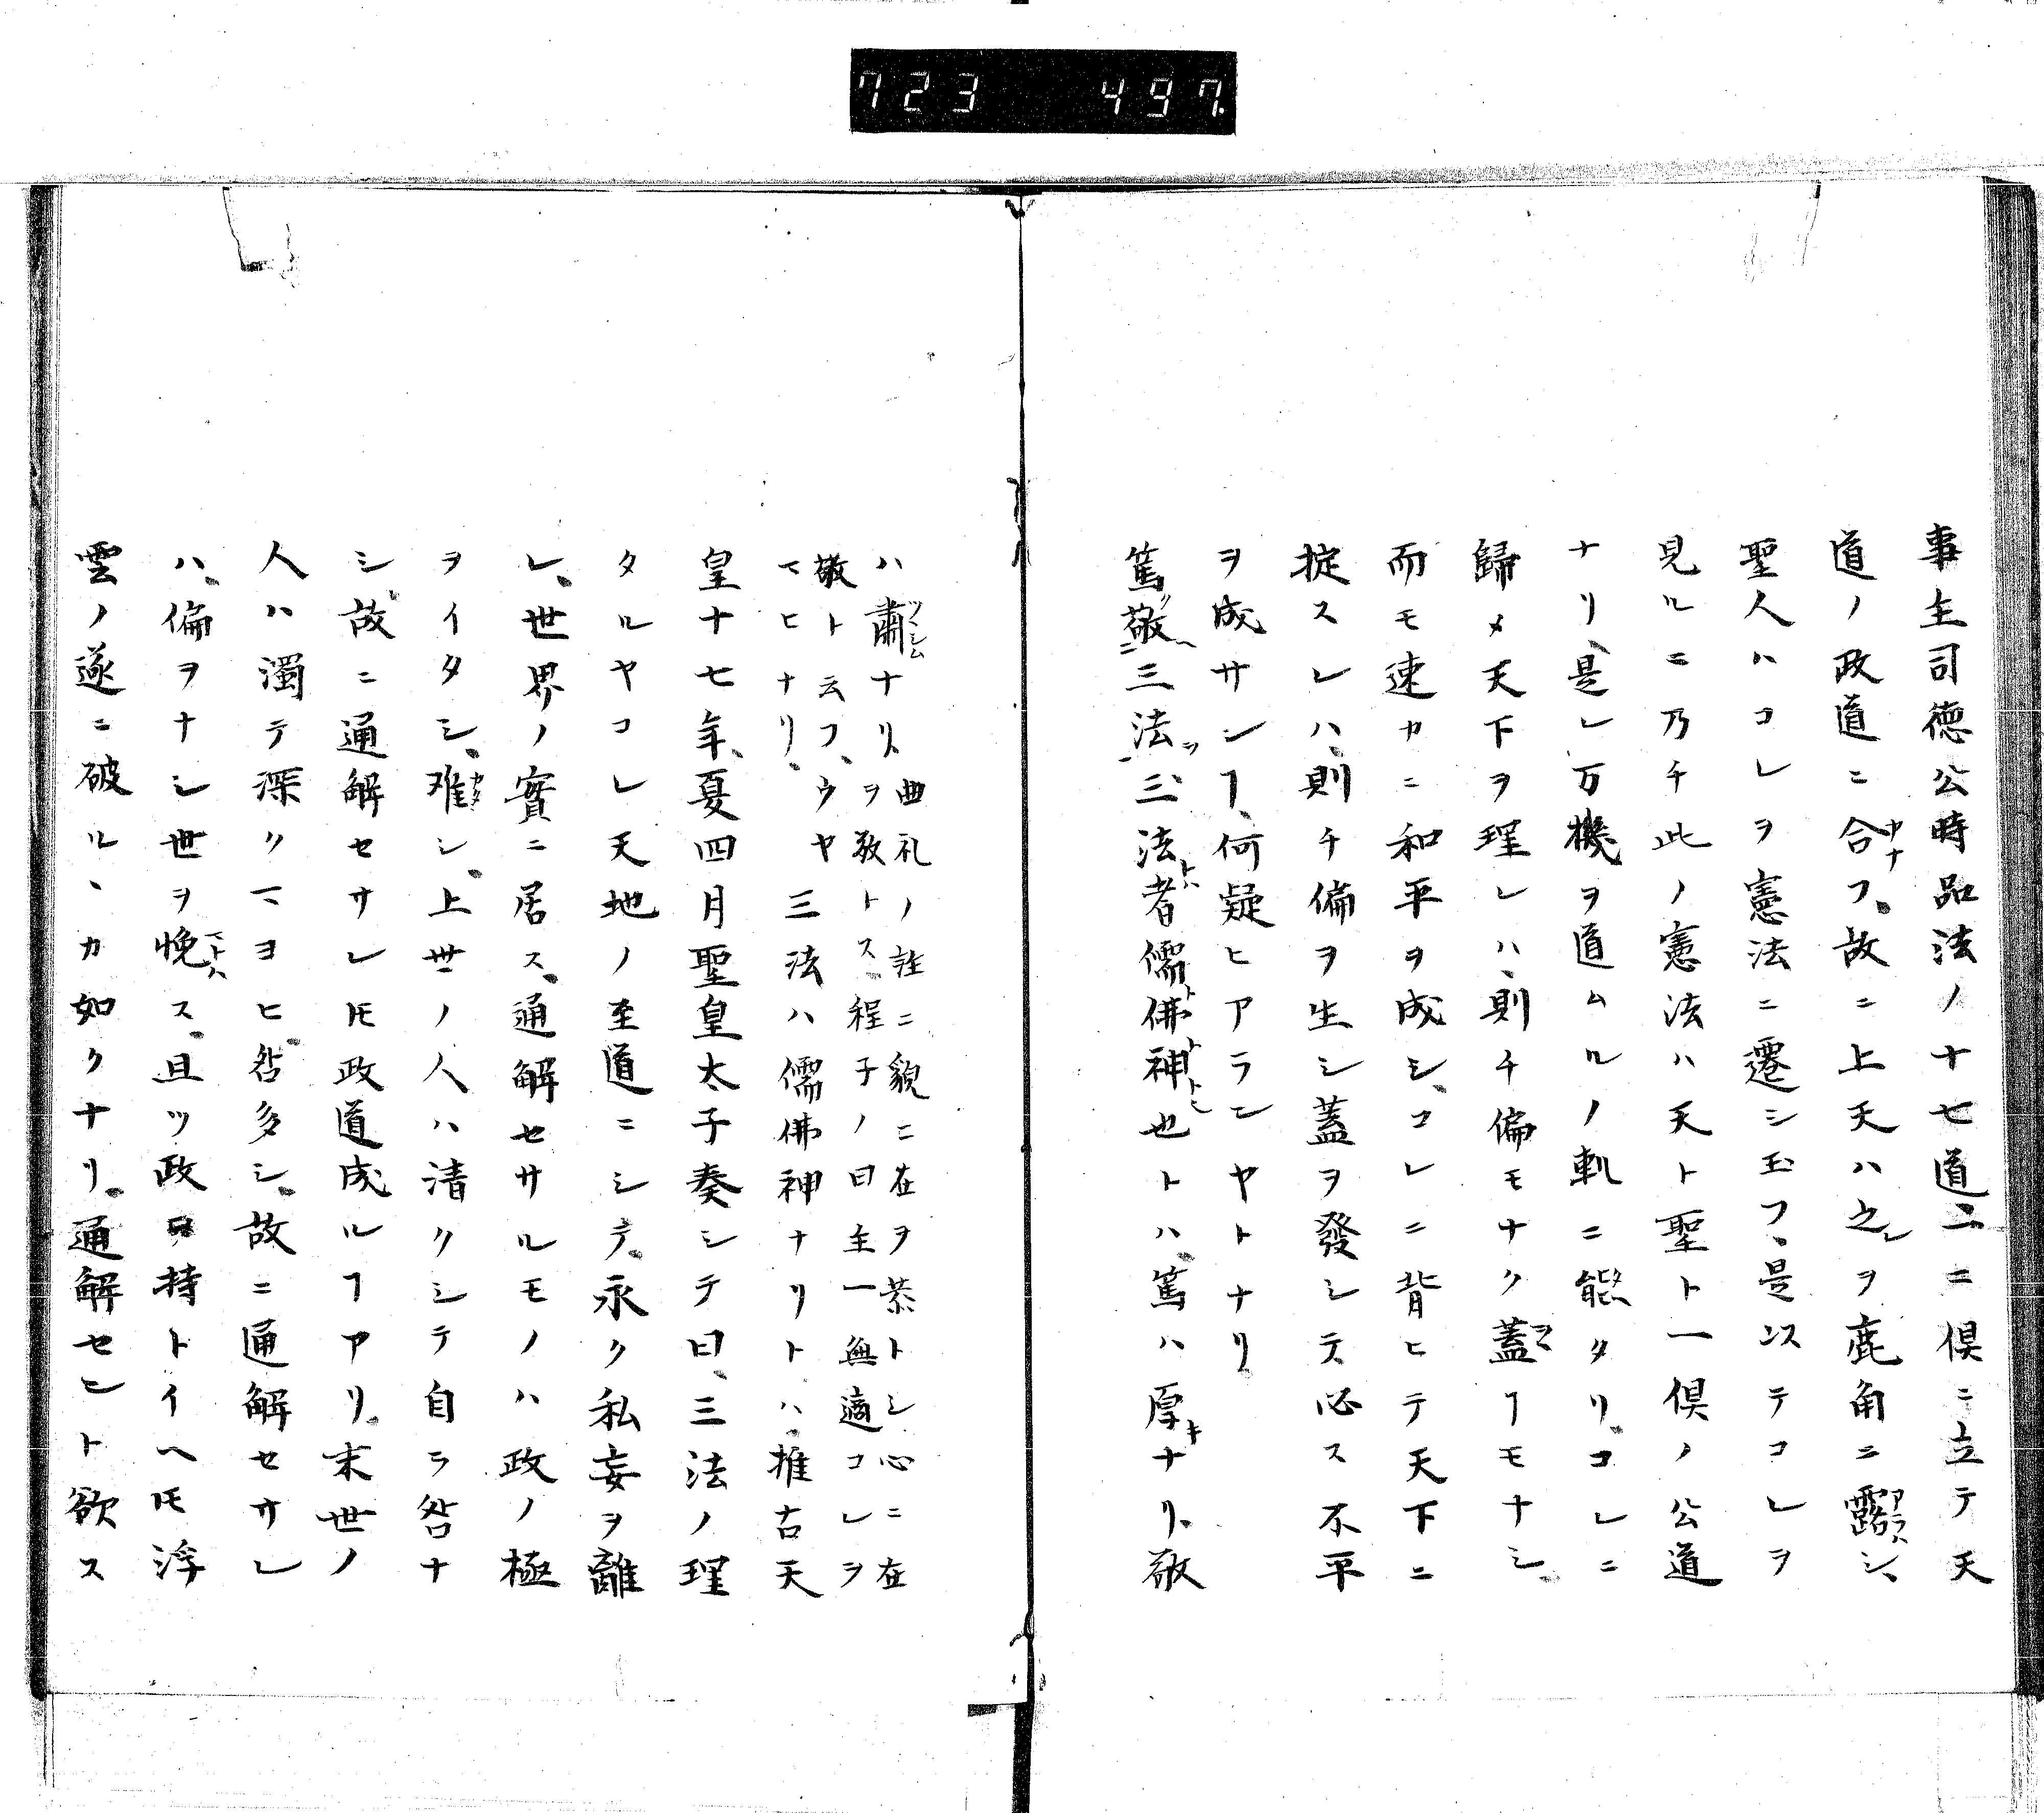 723 497.
事主司徳公時品法ノ十七道ニニ倶ニ立テ天
道ノ政道ニ合フ、故ニ上天ハ之ヲ鹿角ニ露シ、
聖人ハコレヲ憲法ニ遷シ玉フ、是以テコレヲ
見ルニ乃チ此ノ憲法ハ天ト聖ト一倶ノ公道
ナリ、是レ万機ヲ道ムルノ軌ニ能タリ、コレニ
歸メ天下ヲ理レハ、則チ偏モナク蓋ヿモナシ、
而モ速カニ和平ヲ成シ、コレニ背ヒテ天下ニ
掟スレハ、則チ偏ヲ生シ蓋ヲ發シテ必ス不平
ヲ成サンヿ、何疑ヒアランヤトナリ、
篤敬三法三法者儒佛神也トハ、篤ハ厚ナリ、敬
ハ肅ナリ、曲礼ノ註ニ貌ニ在ヲ恭トシ心ニ在
ヲ敬トス、程子ノ曰主一無適コレヲ
敬ト云フ、ウヤ
マヒナリ、三法ハ儒佛神ナリトハ、推古天
皇十七年、夏四月聖皇太子奏シテ曰、三法ノ理
タルヤコレ天地ノ至道ニシテ、永ク私妄ヲ離
レ、世界ノ實ニ居ス、通解セサルモノハ政ノ極
ヲイタシ、难シ、上世ノ人ハ清クシテ自ラ咎ナ
シ、故ニ通解セサレ𪜈政道成ルヿアリ、末世ノ
人ハ濁テ深クマヨヒ、咎多シ、故ニ通解セサレ
ハ、偏ヲナシ世ヲ悗ス、且ツ政ヲ持トイヘ𪜈浮
雲ノ遂ニ破ルヽカ如クナリ、通解セント欲ス